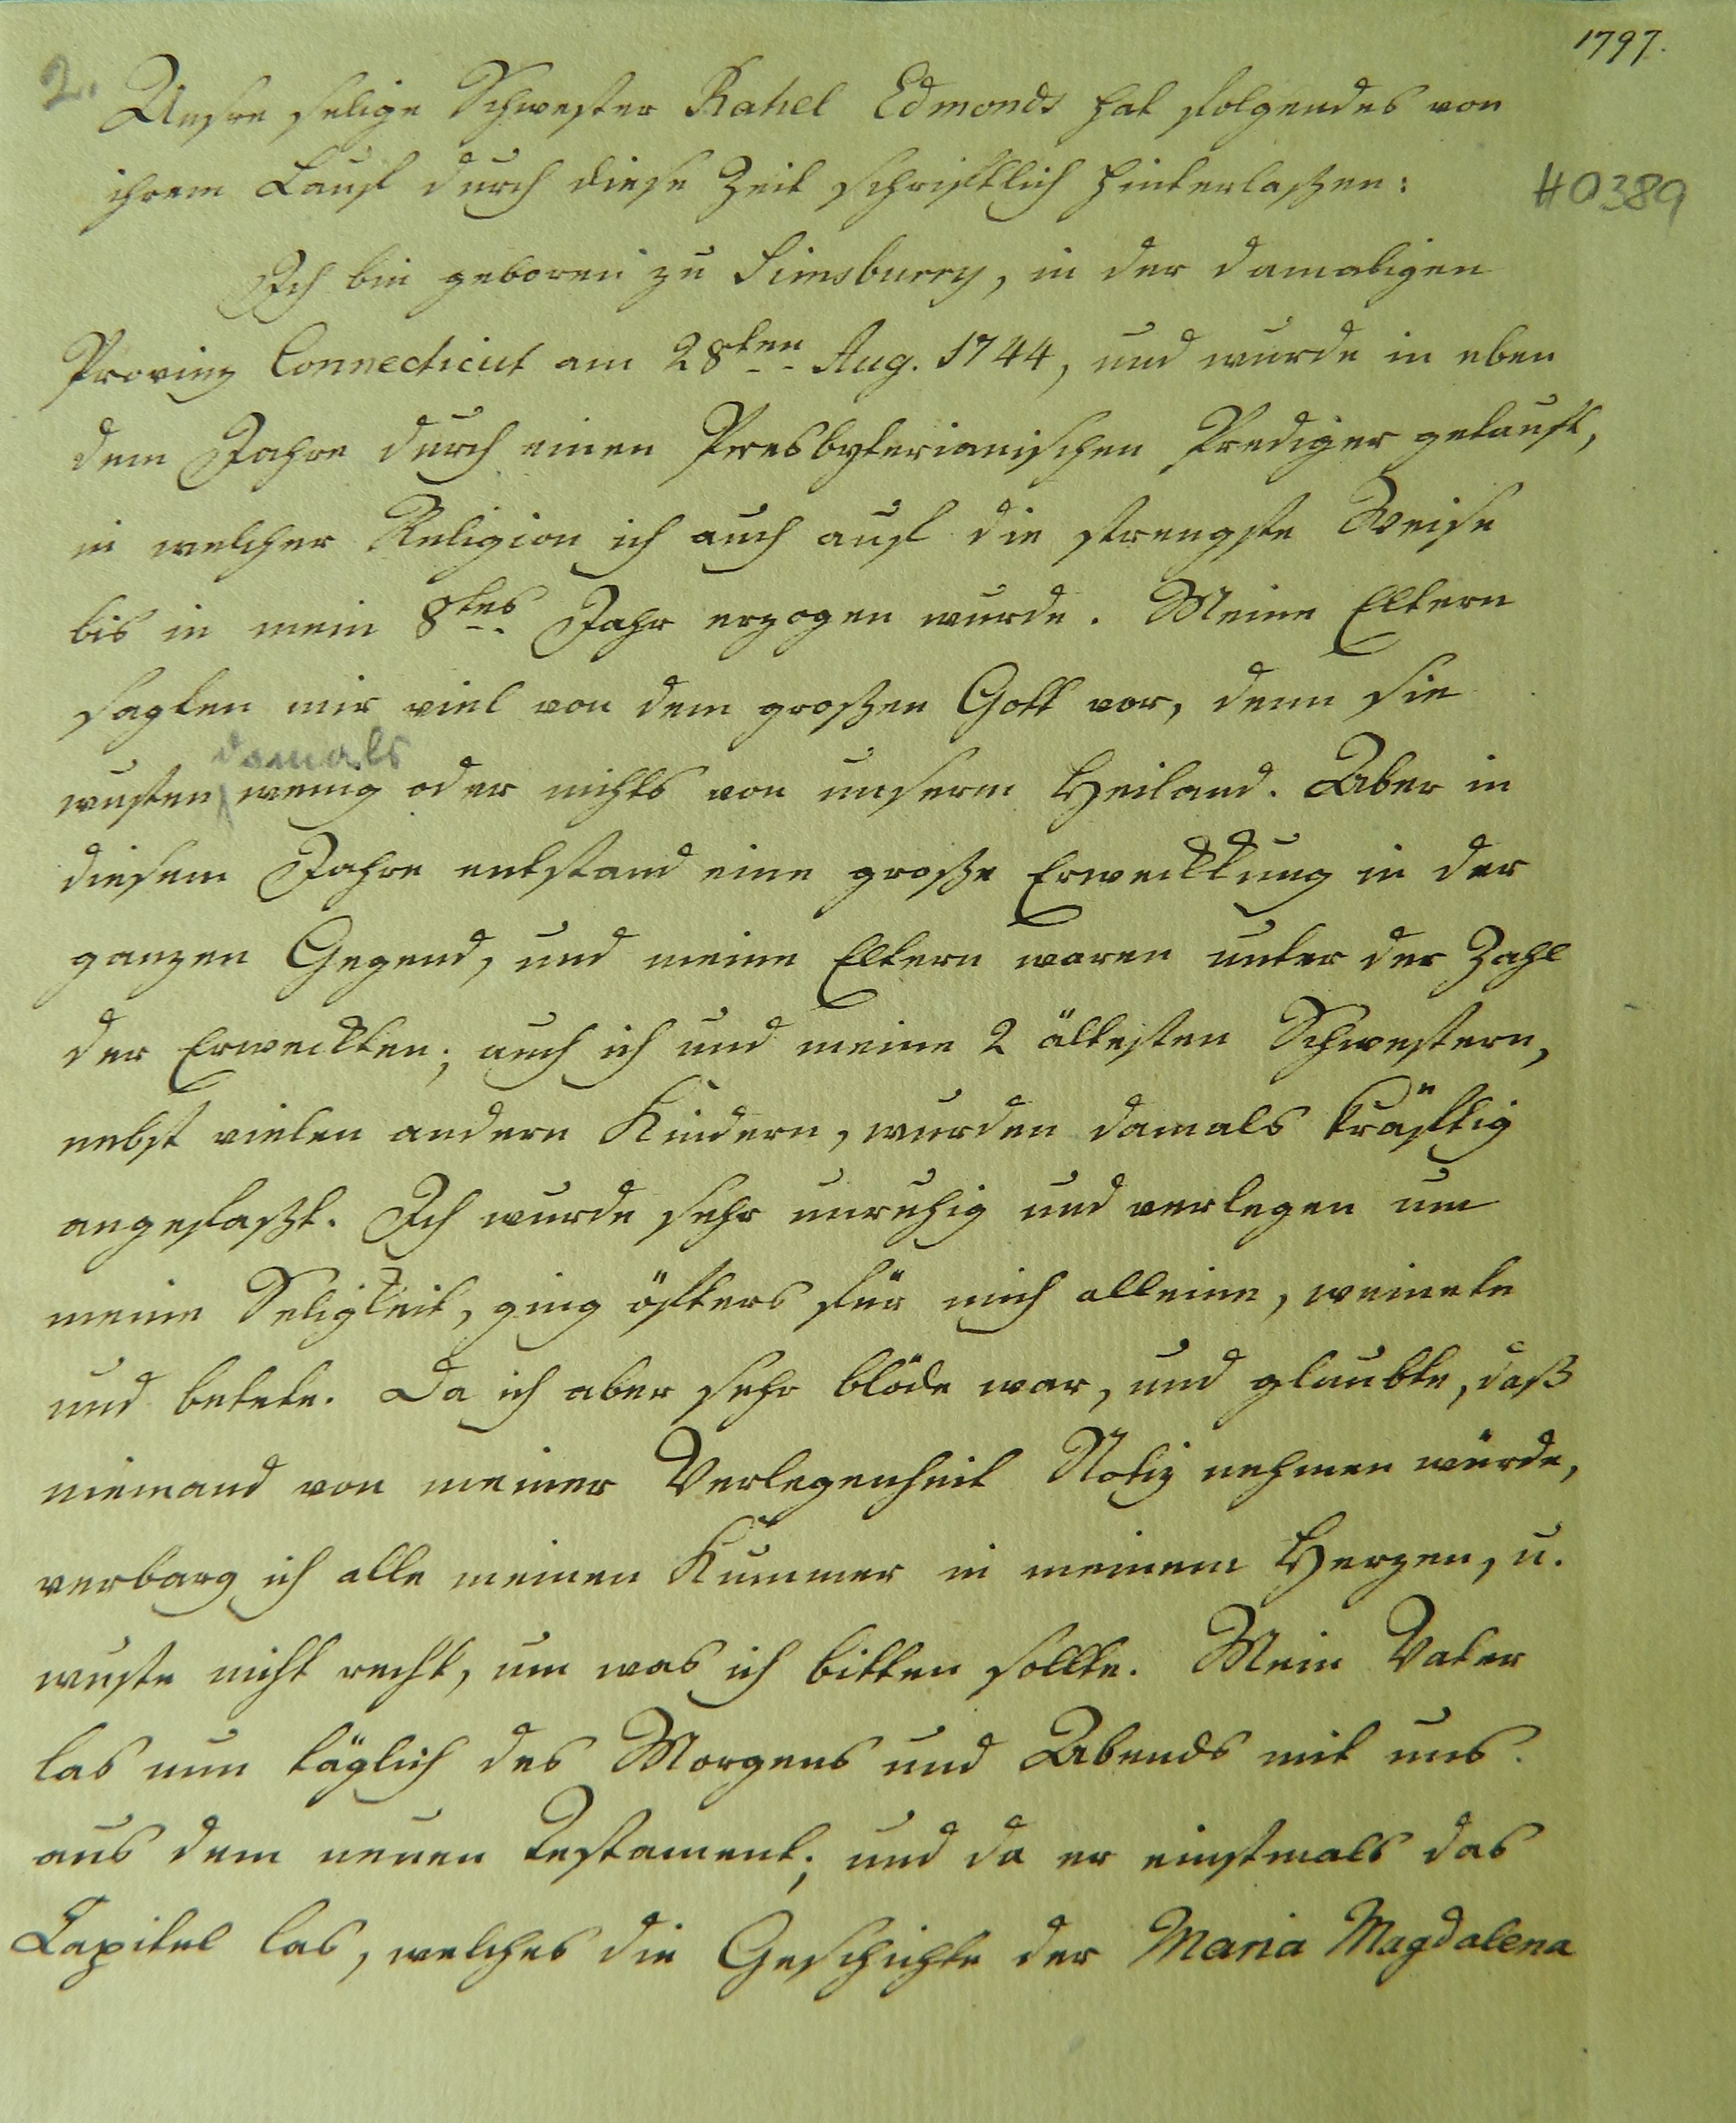 1797.
2. Unsre selige Schwester Rahel Edmonds hat folgendes von
ihrem Lauf durch diese Zeit schriftlich hinterlaßen:
#0389
Ich bin geboren zu Simsburry, in der damaligen
Provinz Connecticut am 28ten Aug. 1744, und wurde in eben
dem Jahre durch einen Presbyterianischen Prediger getauft,
in welcher Religion ich auch auf die strengste Weise
bis in mein 8tes Jahr erzogen wurde. Meine Eltern
sagten mir viel von dem großen Gott vor, denn sie
damals
wusten wenig oder nichts von unserm Heiland. Aber in
diesem Jahre entstand eine große Erweckkung in der
ganzen Gegend, und meine Eltern waren unter der Zahl
der Erweckten; auch ich und meine 2 ältesten Schwestern,
nebst vielen andern Kindern, wurden damals kräftig
angefaßt. Ich wurde sehr unruhig und verlegen um
meine Seligkeit, ging öfters für mich alleine, weinete
und betete. Da ich aber sehr blöde war, und glaubte, daß
niemand von meiner Verlegenheit Notiz nehmen würde,
verbarg ich alle meinen Kummer in meinem Herzen, u.
wuste nicht recht, um was ich bitten sollte. Mein Vater
las nun täglich des Morgens und Abends mit uns
aus dem neuen Testament; und da er einstmals das
Capitel las, welches die Geschichte der Maria Magdalena